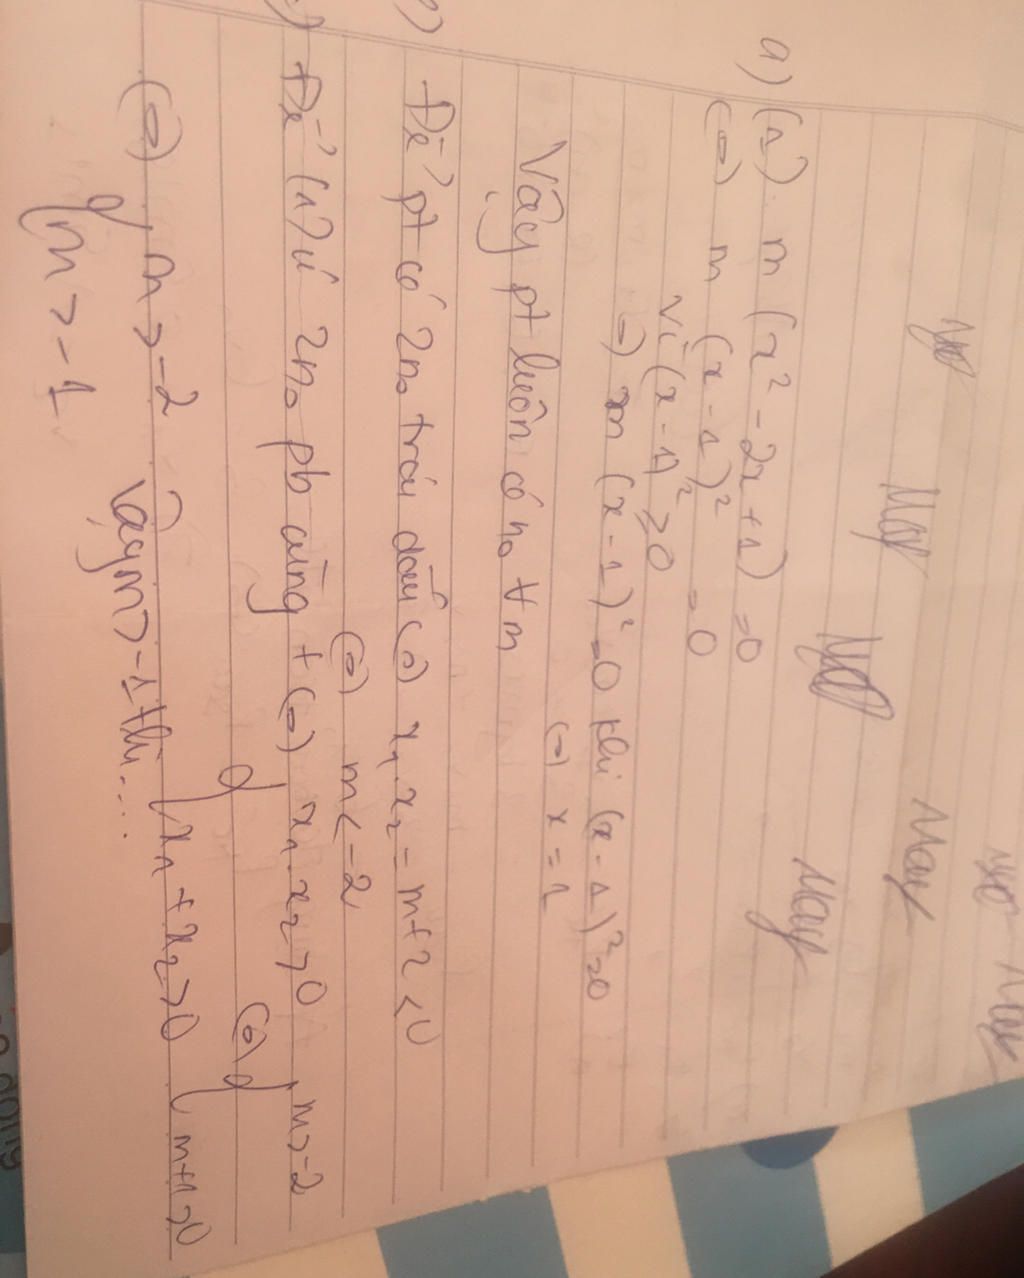 May
May
May
a) (1) m (x² - 2x + 1) = 0
(=) m (x - 1)² = 0
Vì (x - 1)² ≥ 0
(=) m (x - 1)² = 0 khi (x - 1)² = 0
(=) x = 1
Vậy pt luôn có n₀ ∀m
Để pt có 2n₀ trái dấu (=) x₁.x₂ = m+2 < 0
(=) m < -2
Để (1) có 2n₀ pb cùng + (=) { x₁.x₂ > 0 (=) { m > -2
x₁ + x₂ > 0 m+1 > 0
(=) { m > -2 Vậy m > -1 thì....
m > -1